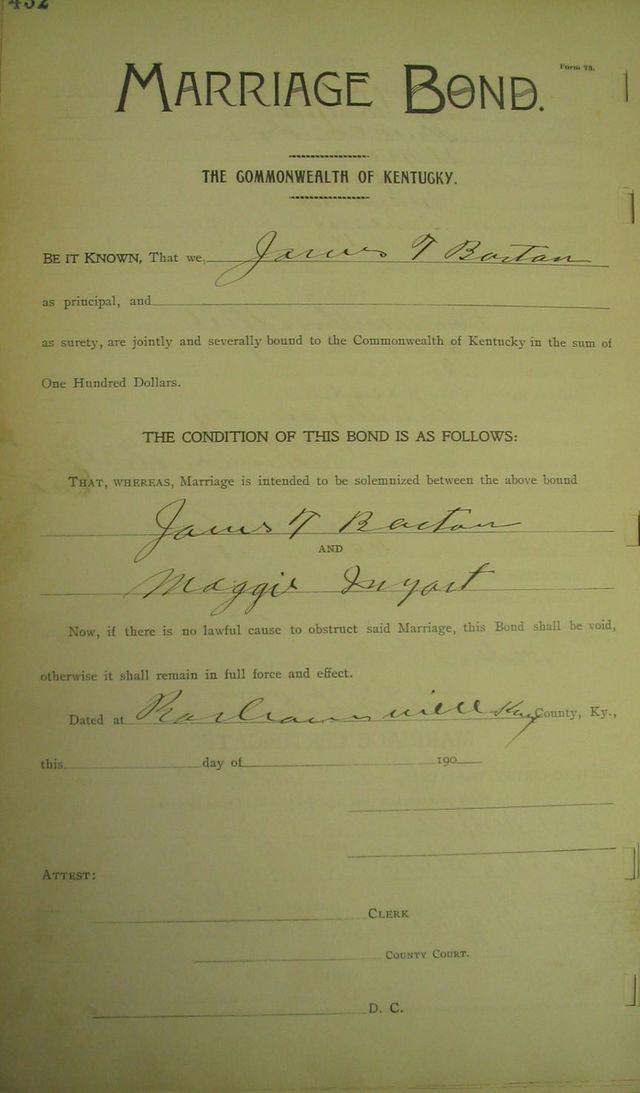 432
Form 73.
MARRIAGE BOND.
THE COMMONWEALTH OF KENTUCKY.
BE IT KNOWN, That we, James T Barton
as principal, and
as surety, are jointly and severally bound to the Commonwealth of Kentucky in the sum of
One Hundred Dollars.
THE CONDITION OF THIS BOND IS AS FOLLOWS:
THAT, WHEREAS, Marriage is intended to be solemnized between the above bound
James T Barton
AND
Maggie Inyart
Now, if there is no lawful cause to obstruct said Marriage, this Bond shall be void,
otherwise it shall remain in full force and effect.
Dated at Barbourville County, Ky.,
this day of 190
ATTEST:
CLERK
COUNTY COURT.
D. C.